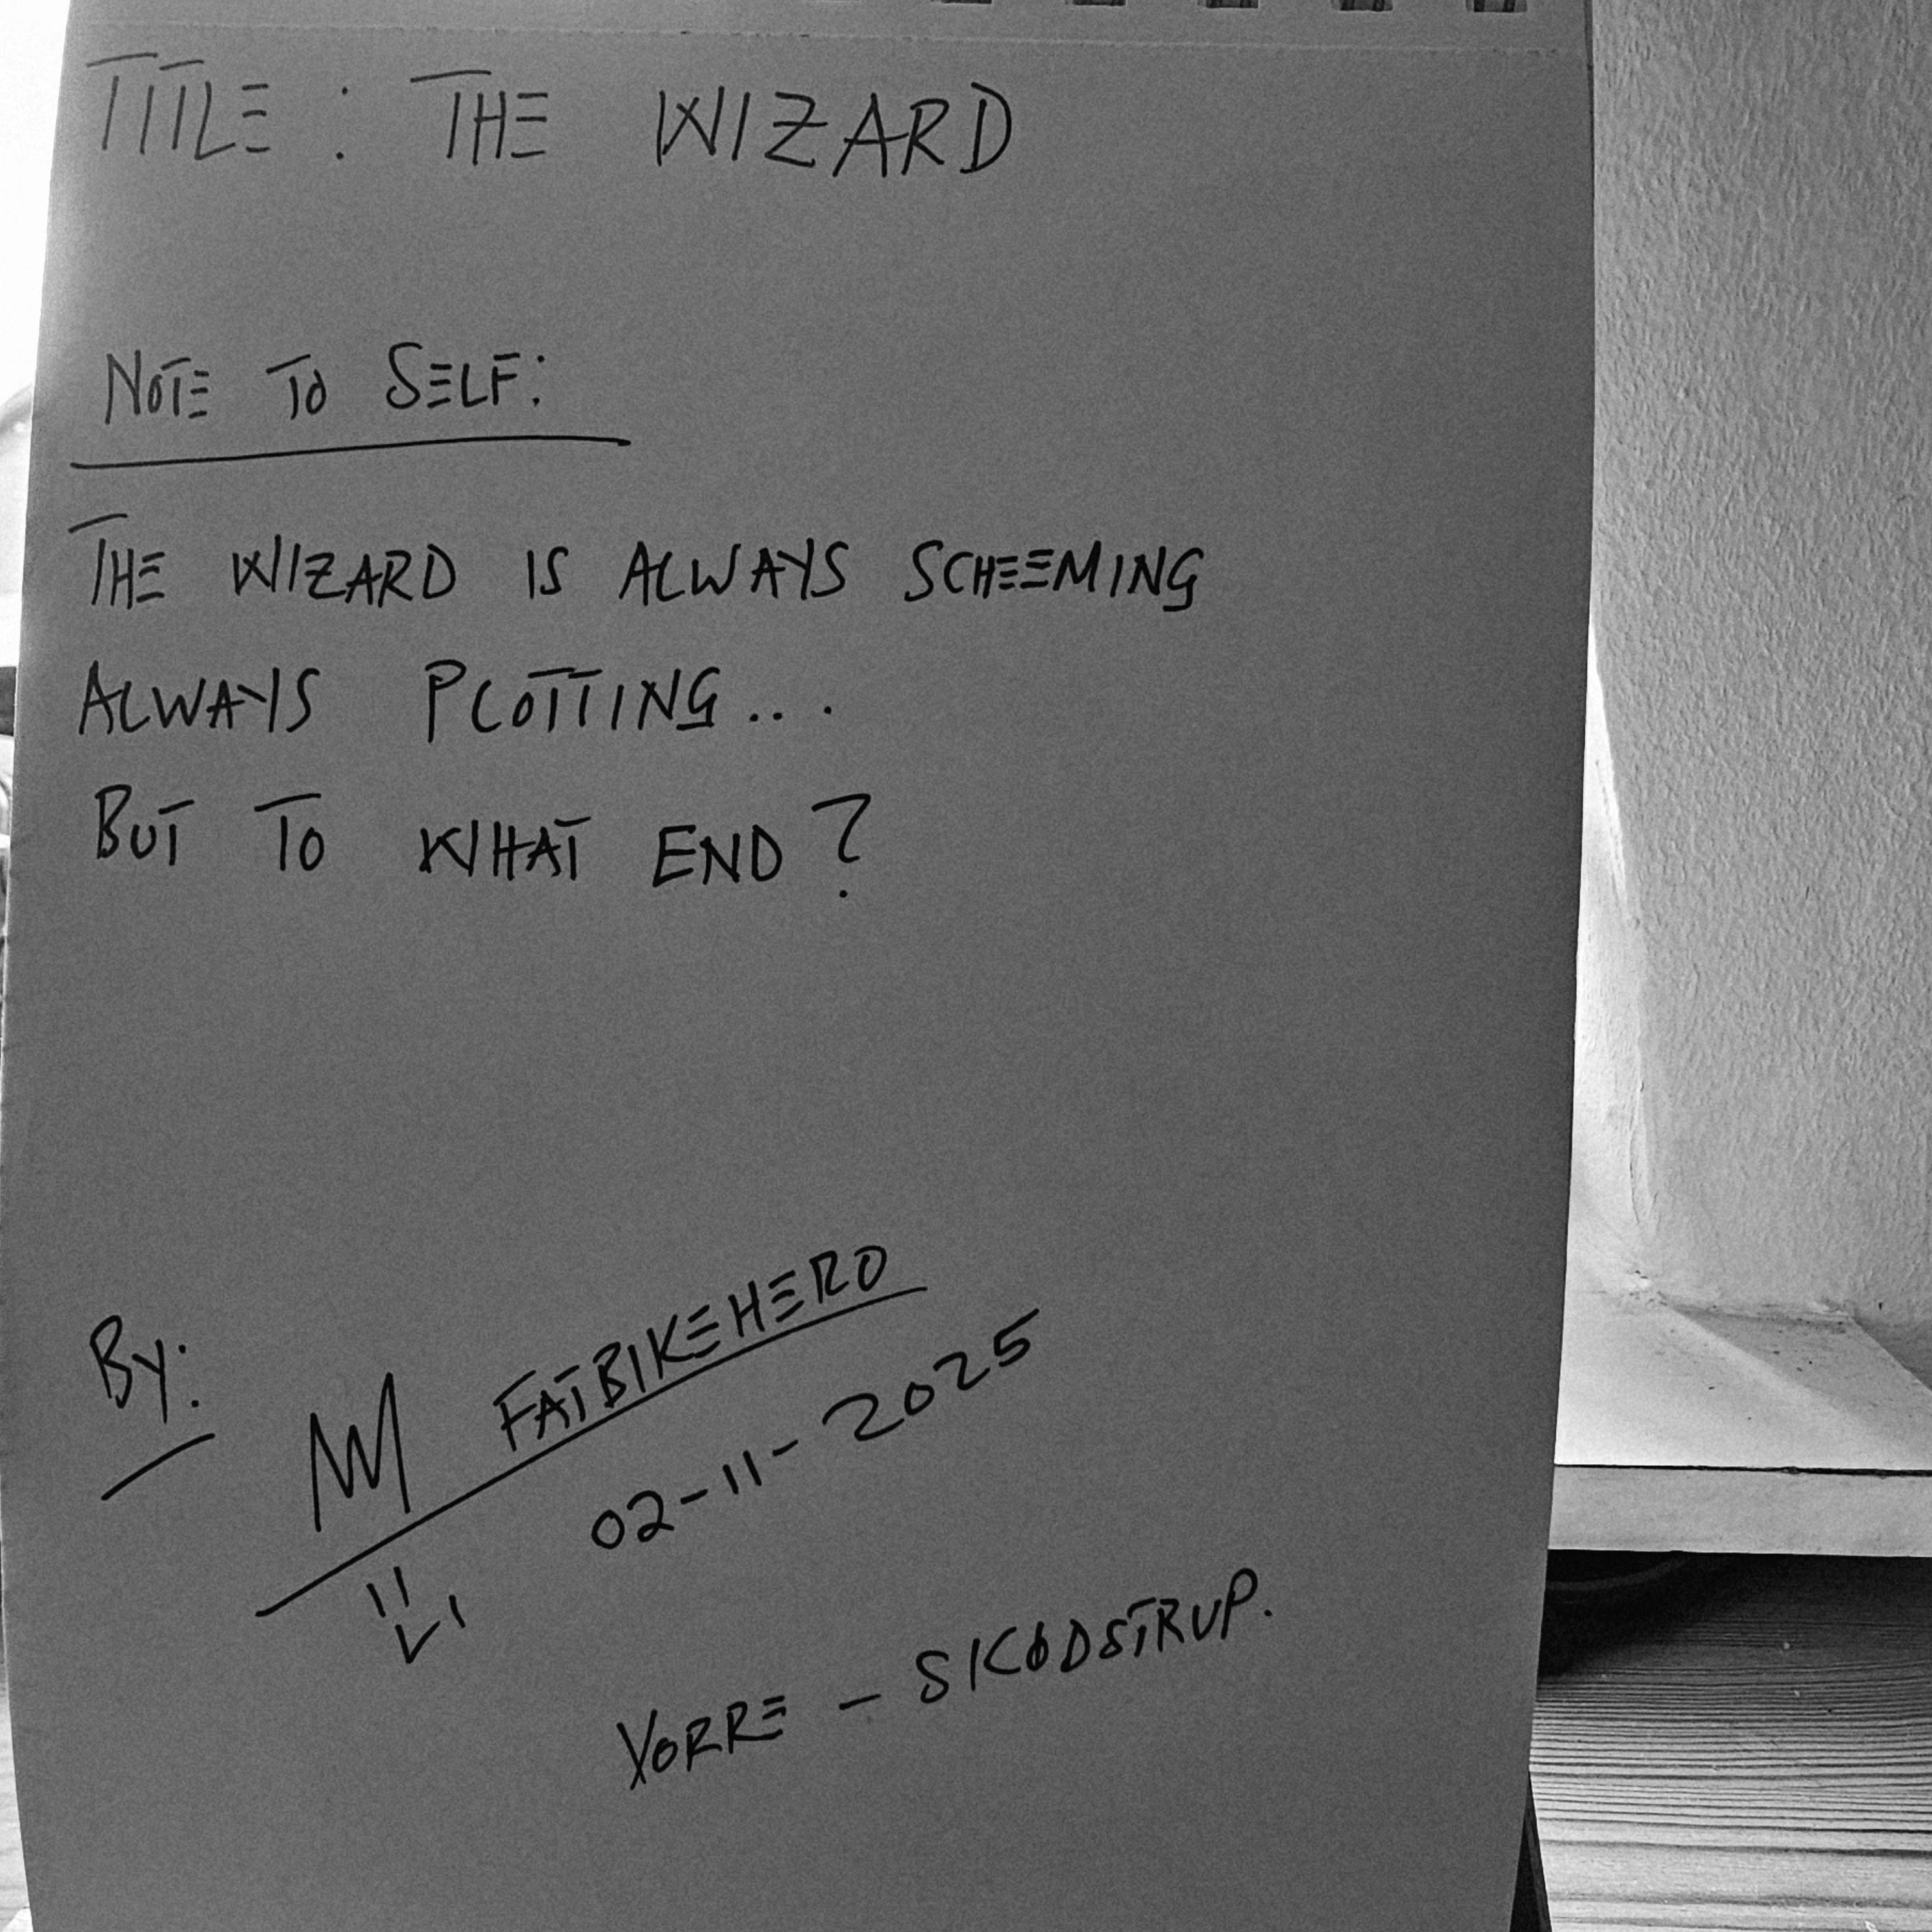 TITLE: THE WIZARD
NOTE TO SELF:
THE WIZARD IS ALWAYS SCHEEMING
ALWAYS PLOTTING...
BUT TO WHAT END?
BY:
FATBIKEHERO
02-11-2025
VORRE - SKØDSTRUP.